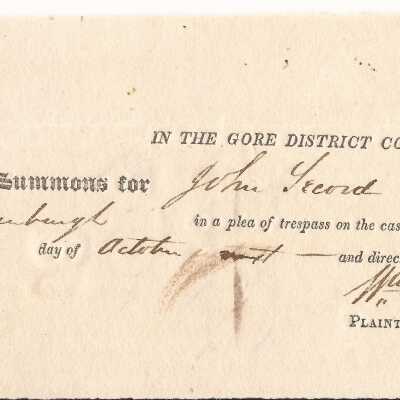 IN THE GORE DISTRICT CO
Summons for John Secord
in a plea of trespass on the cas
day of October next — and direc
PLAINT